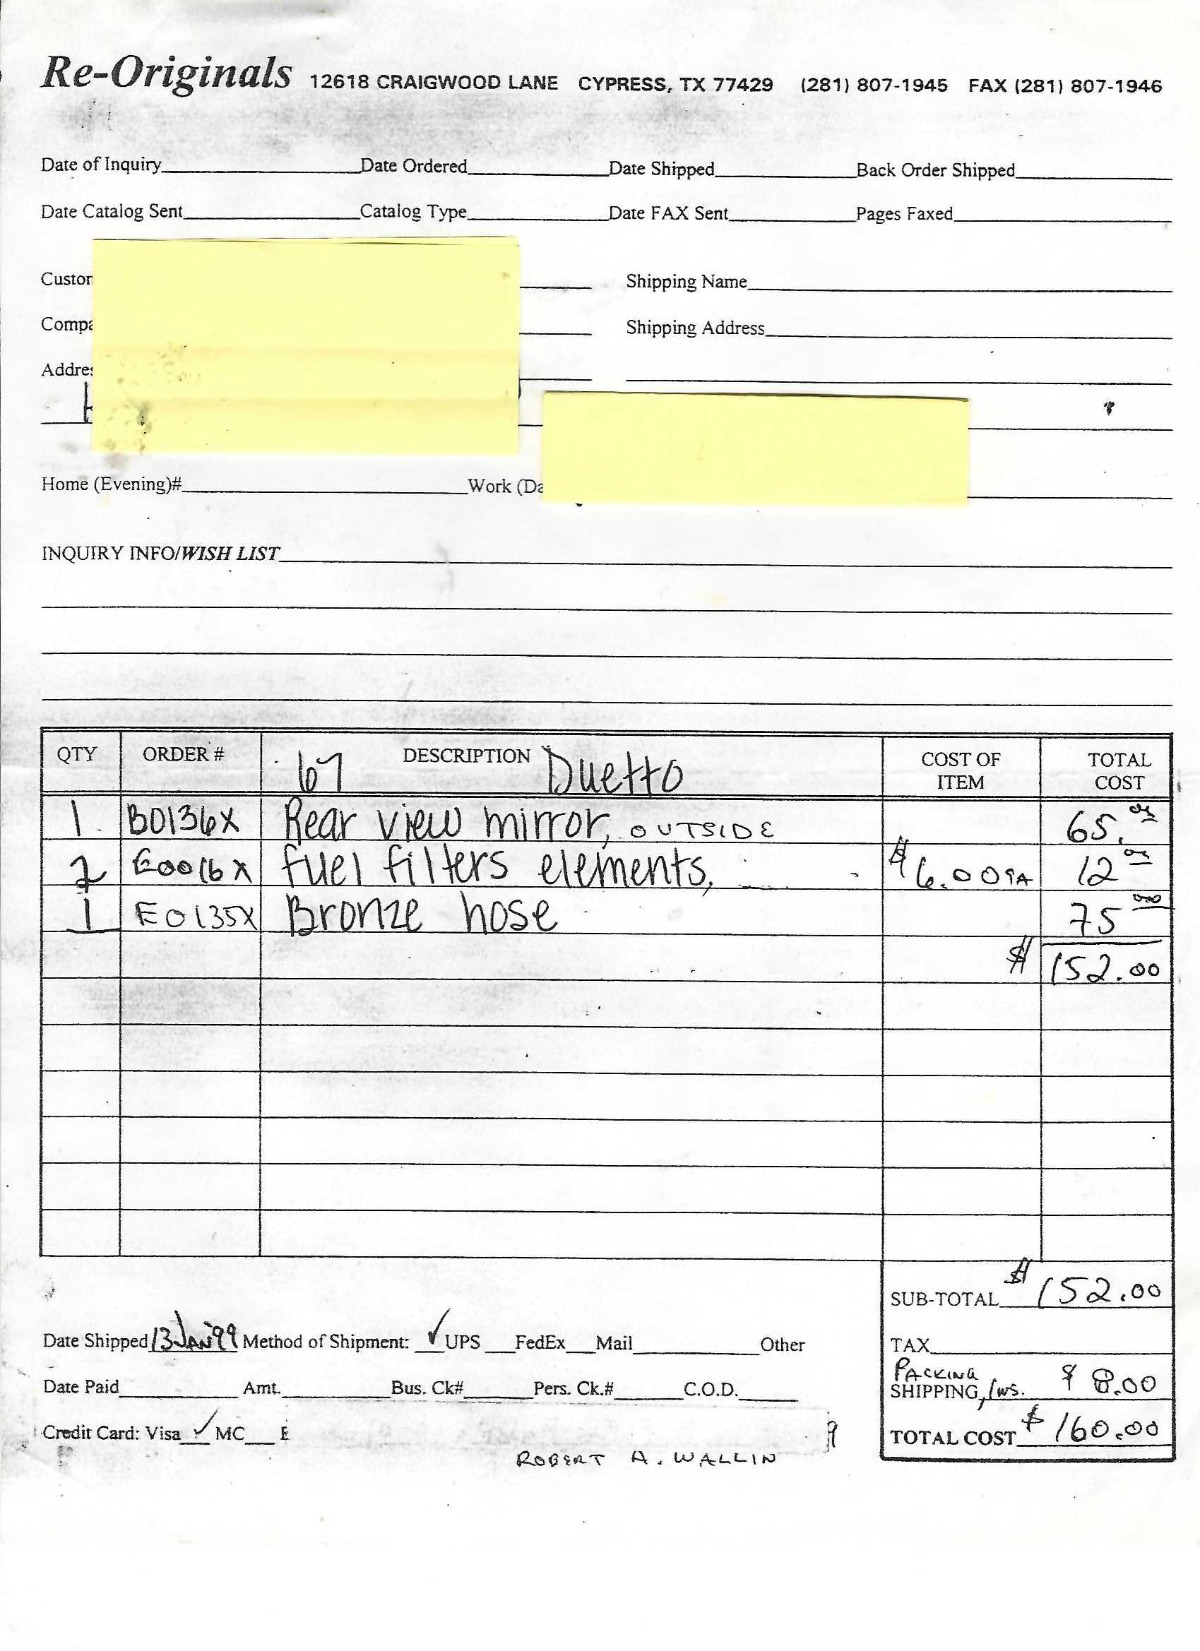 Re-Originals 12618 CRAIGWOOD LANE CYPRESS, TX 77429 (281) 807-1945 FAX (281) 807-1946
Date of Inquiry Date Ordered Date Shipped Back Order Shipped
Date Catalog Sent Catalog Type Date FAX Sent Pages Faxed
Shipping Name
Shipping Address
Home (Evening)# Work
INQUIRY INFO/WISH LIST
QTY ORDER # 67 DESCRIPTION Duetto COST OF ITEM TOTAL COST
1 B0136X Rear view mirror, OUTSIDE 65.00
2 E0016X fuel filters elements, $6.00 EA 12.00
1 E0135X Bronze hose 75.00
$ 152.00
SUB-TOTAL $152.00
Date Shipped 13 JAN 99 Method of Shipment: ✓ UPS FedEx Mail Other
TAX
Date Paid Amt. Bus. Ck# Pers. Ck.# C.O.D.
PACKING
SHIPPING, /INS. $ 8.00
Credit Card: Visa ✓ MC
TOTAL COST $160.00
ROBERT A. WALLIN